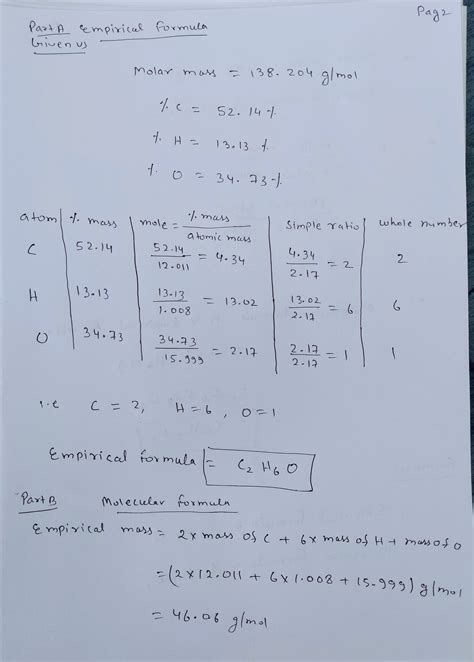 Pag 2
Part A Empirical Formula
Given us
Molar mass = 138.204 g/mol
% C = 52.14 %
% H = 13.13 %
% O = 34.73 %
atom % mass mole = % mass / atomic mass Simple ratio whole number
C 52.14 52.14 / 12.011 = 4.34 4.34 / 2.17 = 2 2
H 13.13 13.13 / 1.008 = 13.02 13.02 / 2.17 = 6 6
O 34.73 34.73 / 15.999 = 2.17 2.17 / 2.17 = 1 1
i.e C = 2, H = 6, O = 1
Empirical formula = C2 H6 O
Part B Molecular formula
Empirical mass = 2 x mass of C + 6 x mass of H + mass of O
= (2 x 12.011 + 6 x 1.008 + 15.999) g/mol
= 46.06 g/mol